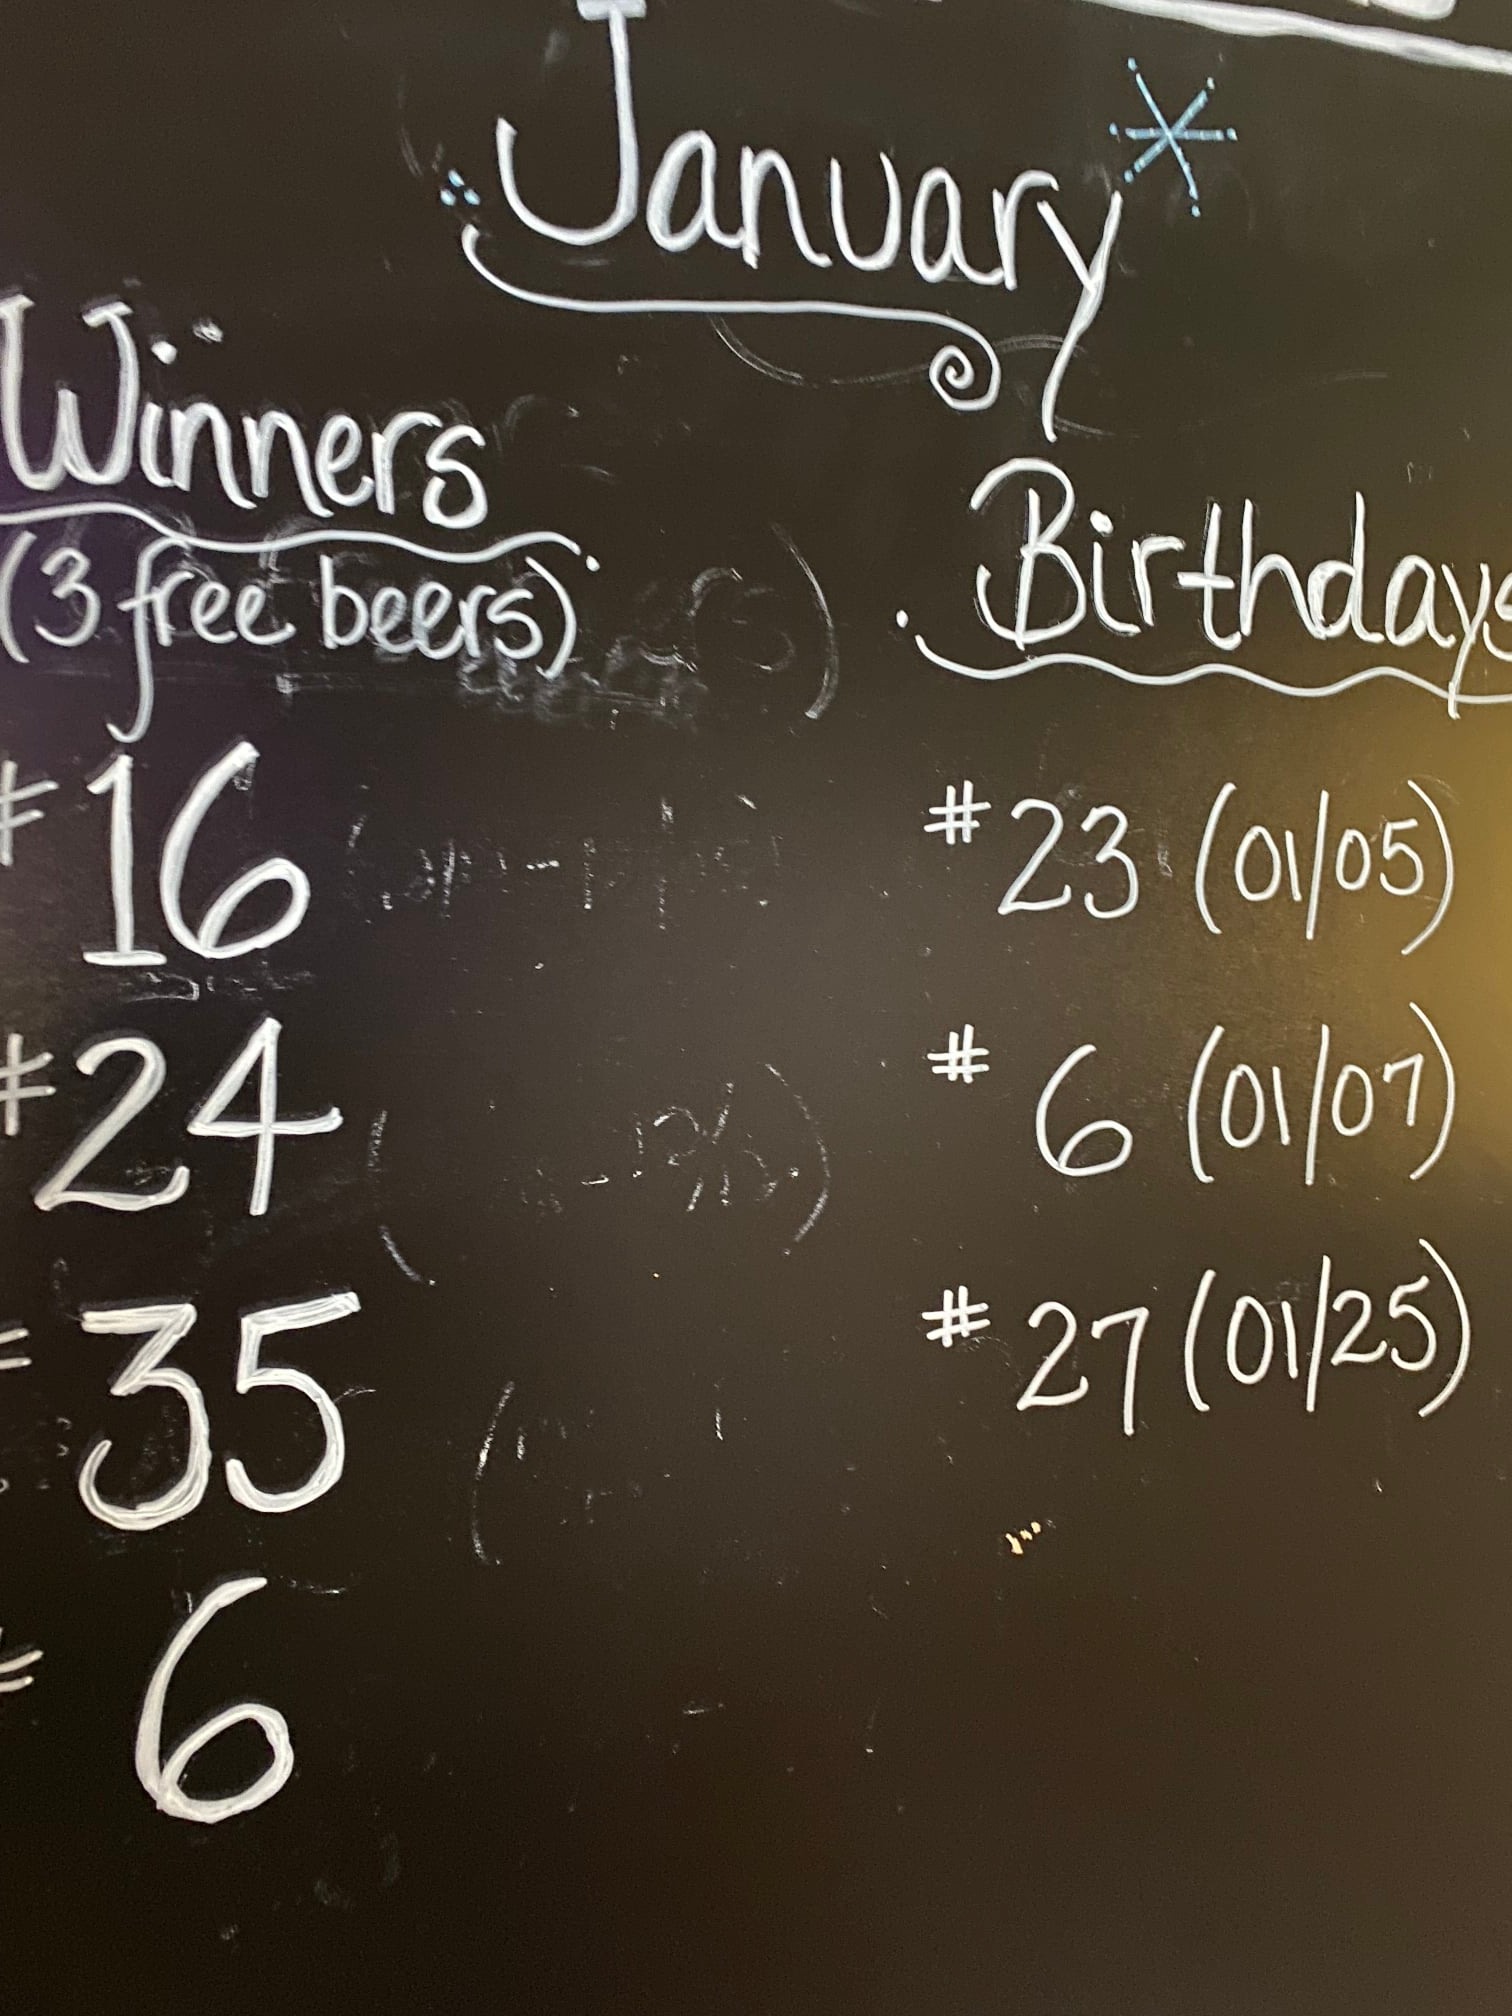 January
Winners
(3 free beers)
#16
#24
#35
#6
Birthdays
#23 (01/05)
#6 (01/07)
#27 (01/25)